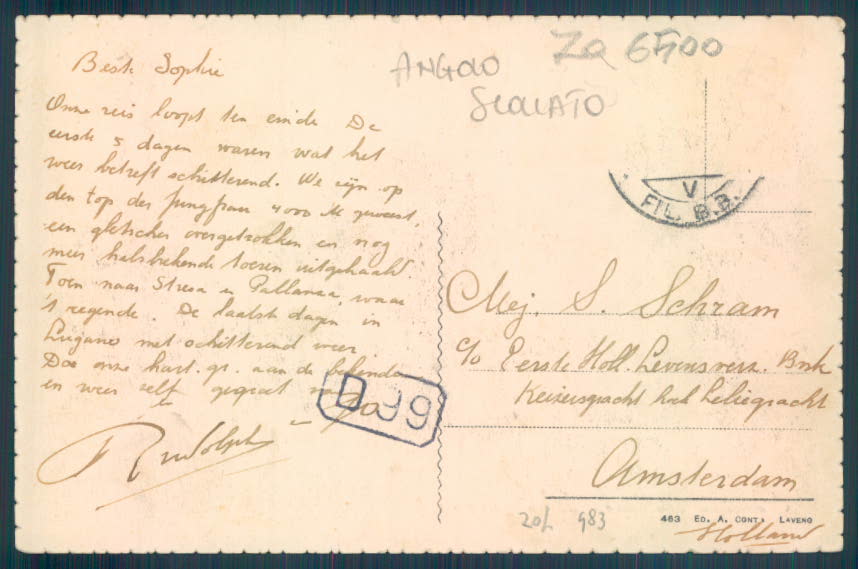 Beste Sophie
Onze reis loopt ten einde De
eerste 5 dagen waren wat het
weer betreft schitterend. We zijn op
den top der Jungfrau 4000 M geweest,
een gletscher overgetrokken en nog
meer halsbrekende toeren uitgehaald.
Toen naar Stresa en Pallanza, waar
't regende. De laatste dagen in
Lugano met schitterend weer
Doe onze hart. gr. aan de bekenden
en wees zelf gegroet
Rudolph
ANGOLO
SCOLATO
Za 6500
V
FIL. B.B.
Mej. S. Schram
c/o Eerste Holl. Levensverz. Bnk
Keizersgracht hoek Leliegracht
Amsterdam
Holland
D 99
20L 983
463 ED. A. CONTI LAVENO